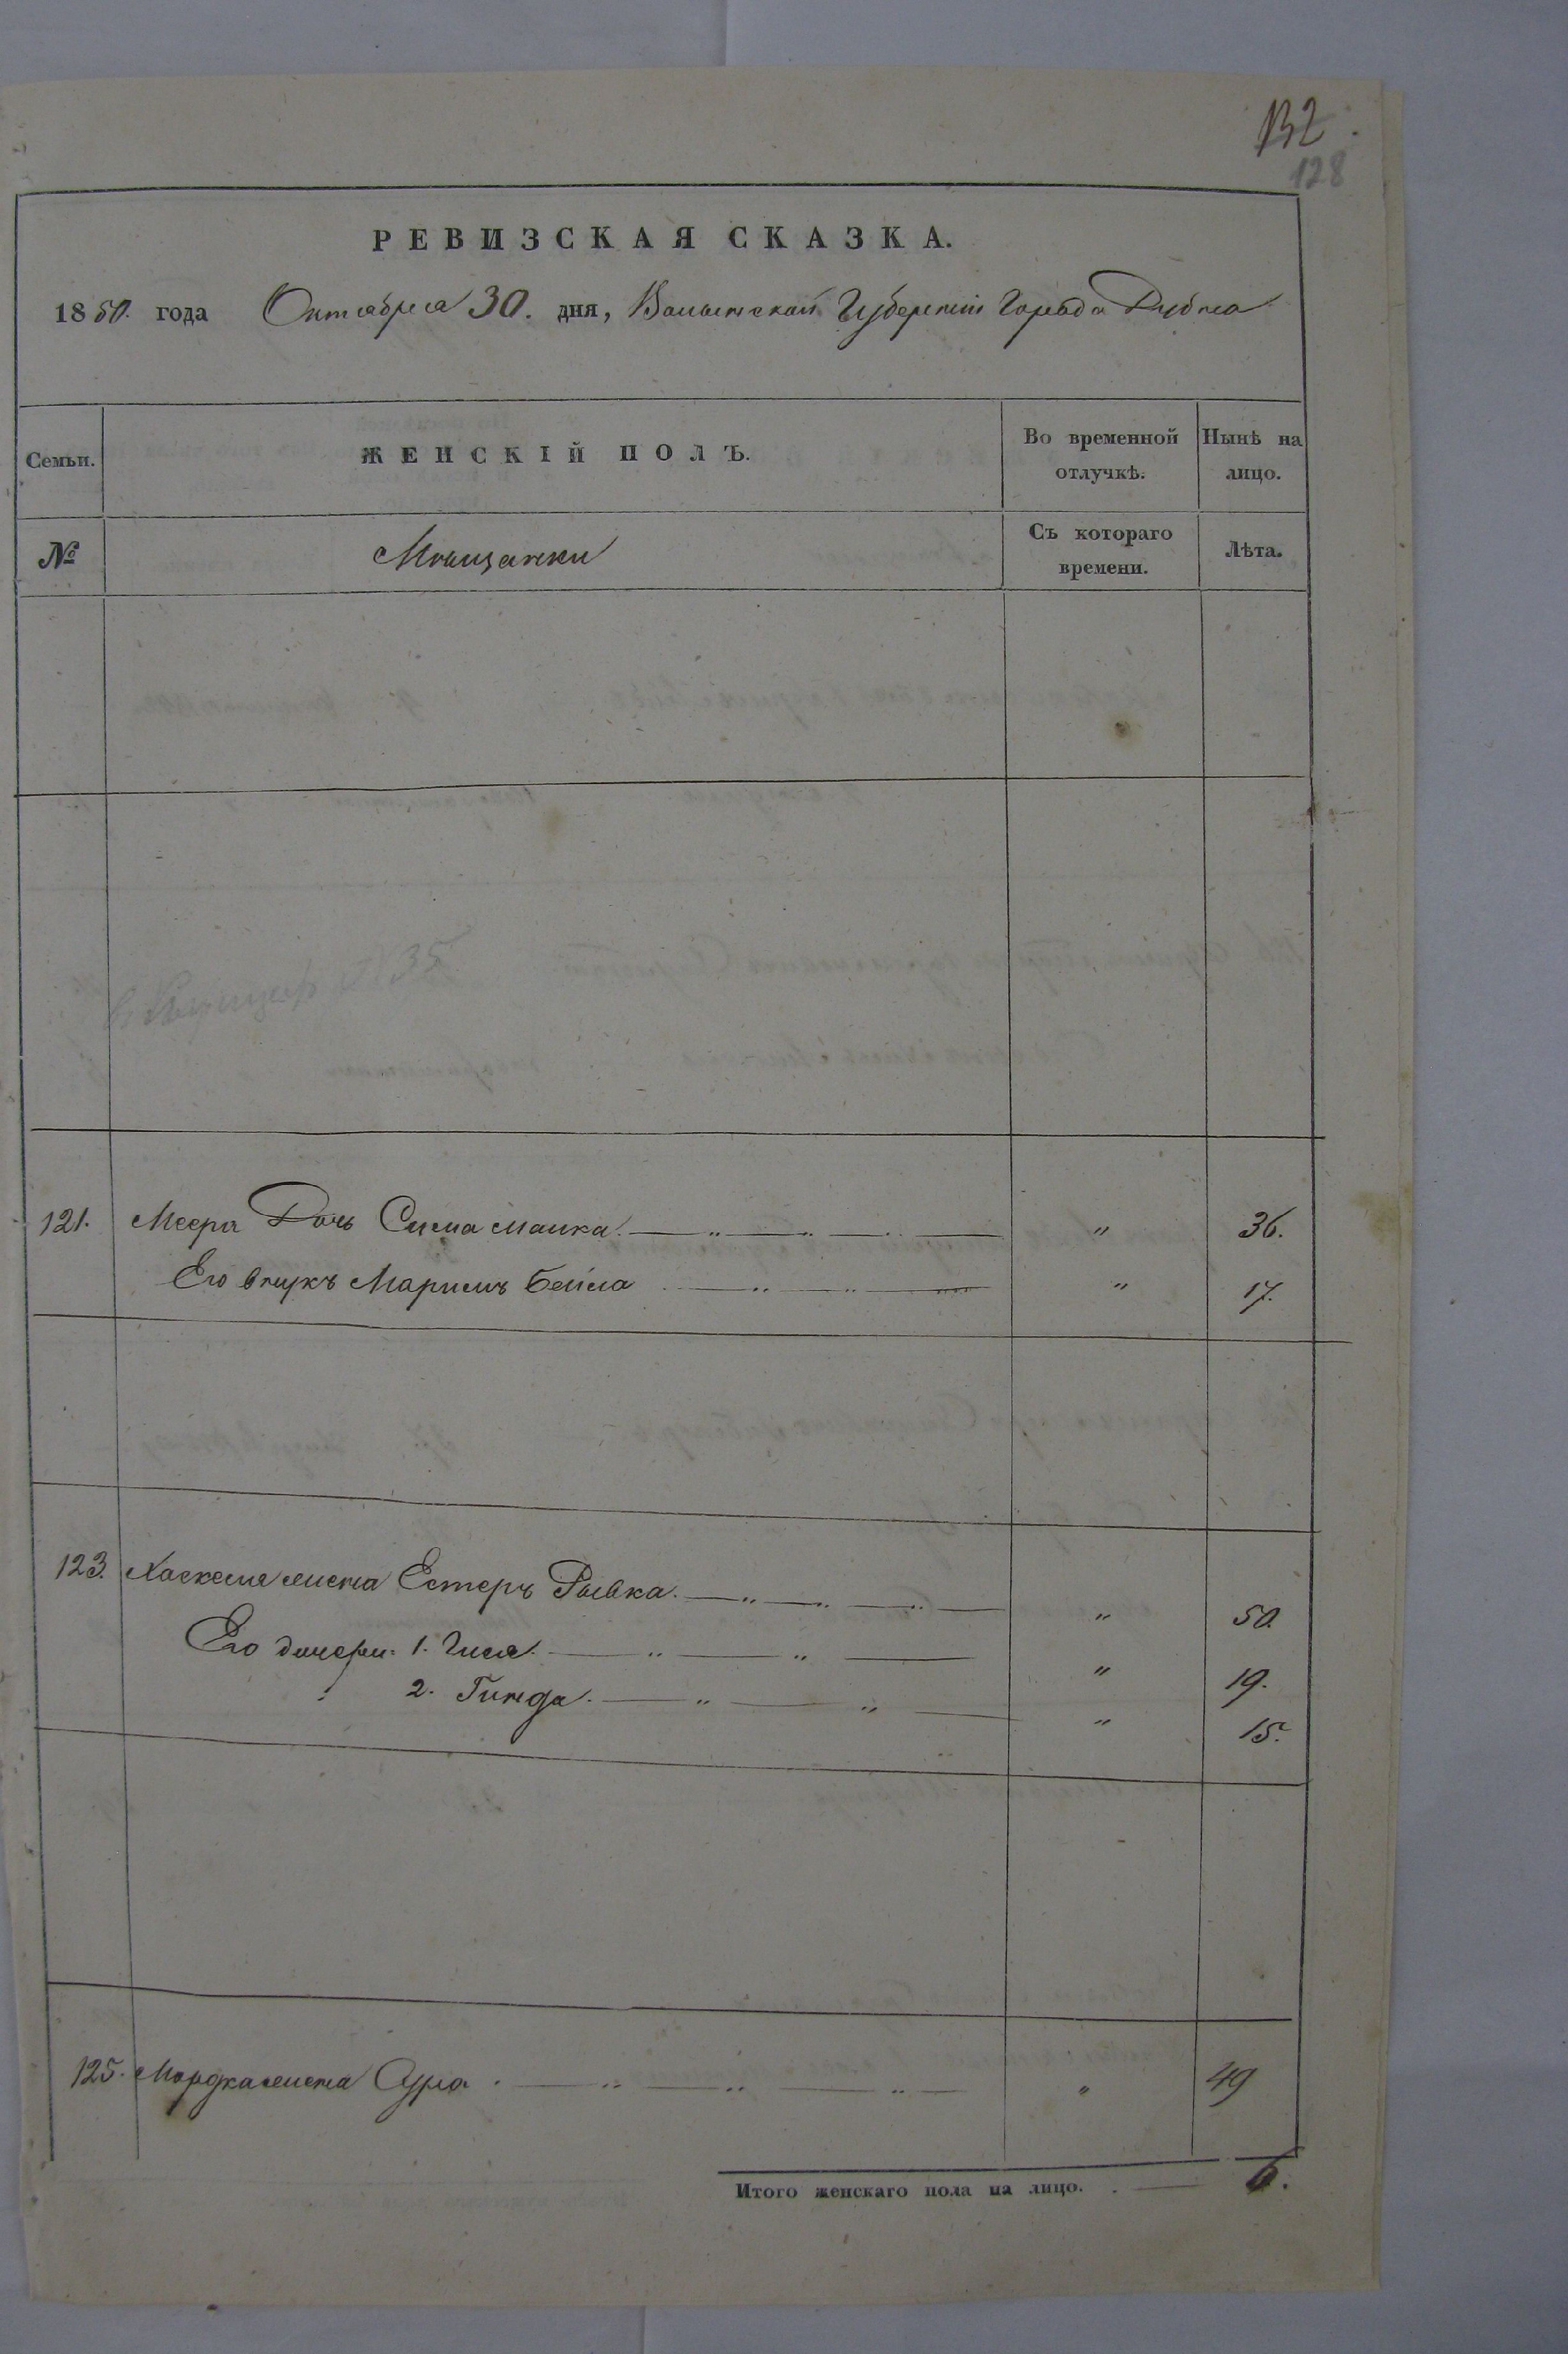 132.
128
РЕВИЗСКАЯ СКАЗКА.
1850. года Октября 30. дня, Волынской Губернии Города Дубна
Семьи. ЖЕНСКІЙ ПОЛЪ. Во временной отлучкѣ. Нынѣ на лицо.
№ Мѣщанки Съ котораго времени. Лѣта.
№ 35
121. Меера Дочь Сима Малка. " 36.
Его внукъ Маримъ Бейла " 17.
123. Хаскеля жена Естеръ Рывка. " 50.
Его дочери: 1. Гися. " 19.
2. Гинда. " 15.
125. Мордка жена Сура. " 49
Итого женскаго пола на лицо. 6.